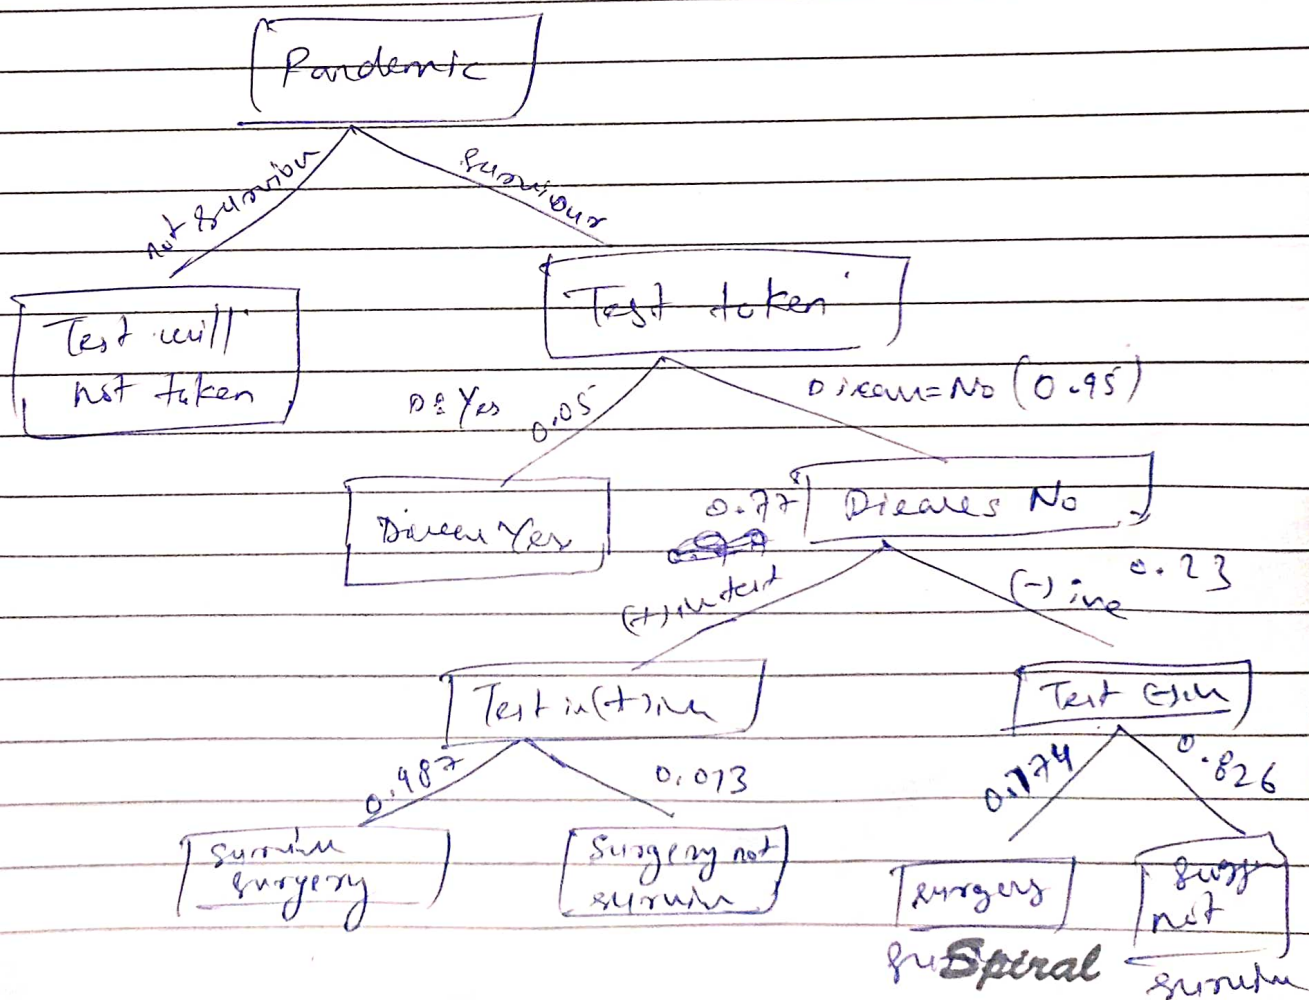 Pandemic
not survivou
surviour
Test will
not taken
Test taken
D: Yes
0.05
Disean=No (0.95)
Diseen Yes
0.77
Diseases No
0.23
(+)ive test
(-) ive
Test is (+)ive
Test (-)ive
0.987
0.013
0.174
0.826
survive
surgery
Surgery not
survive
surgery
not
Spiral
survive